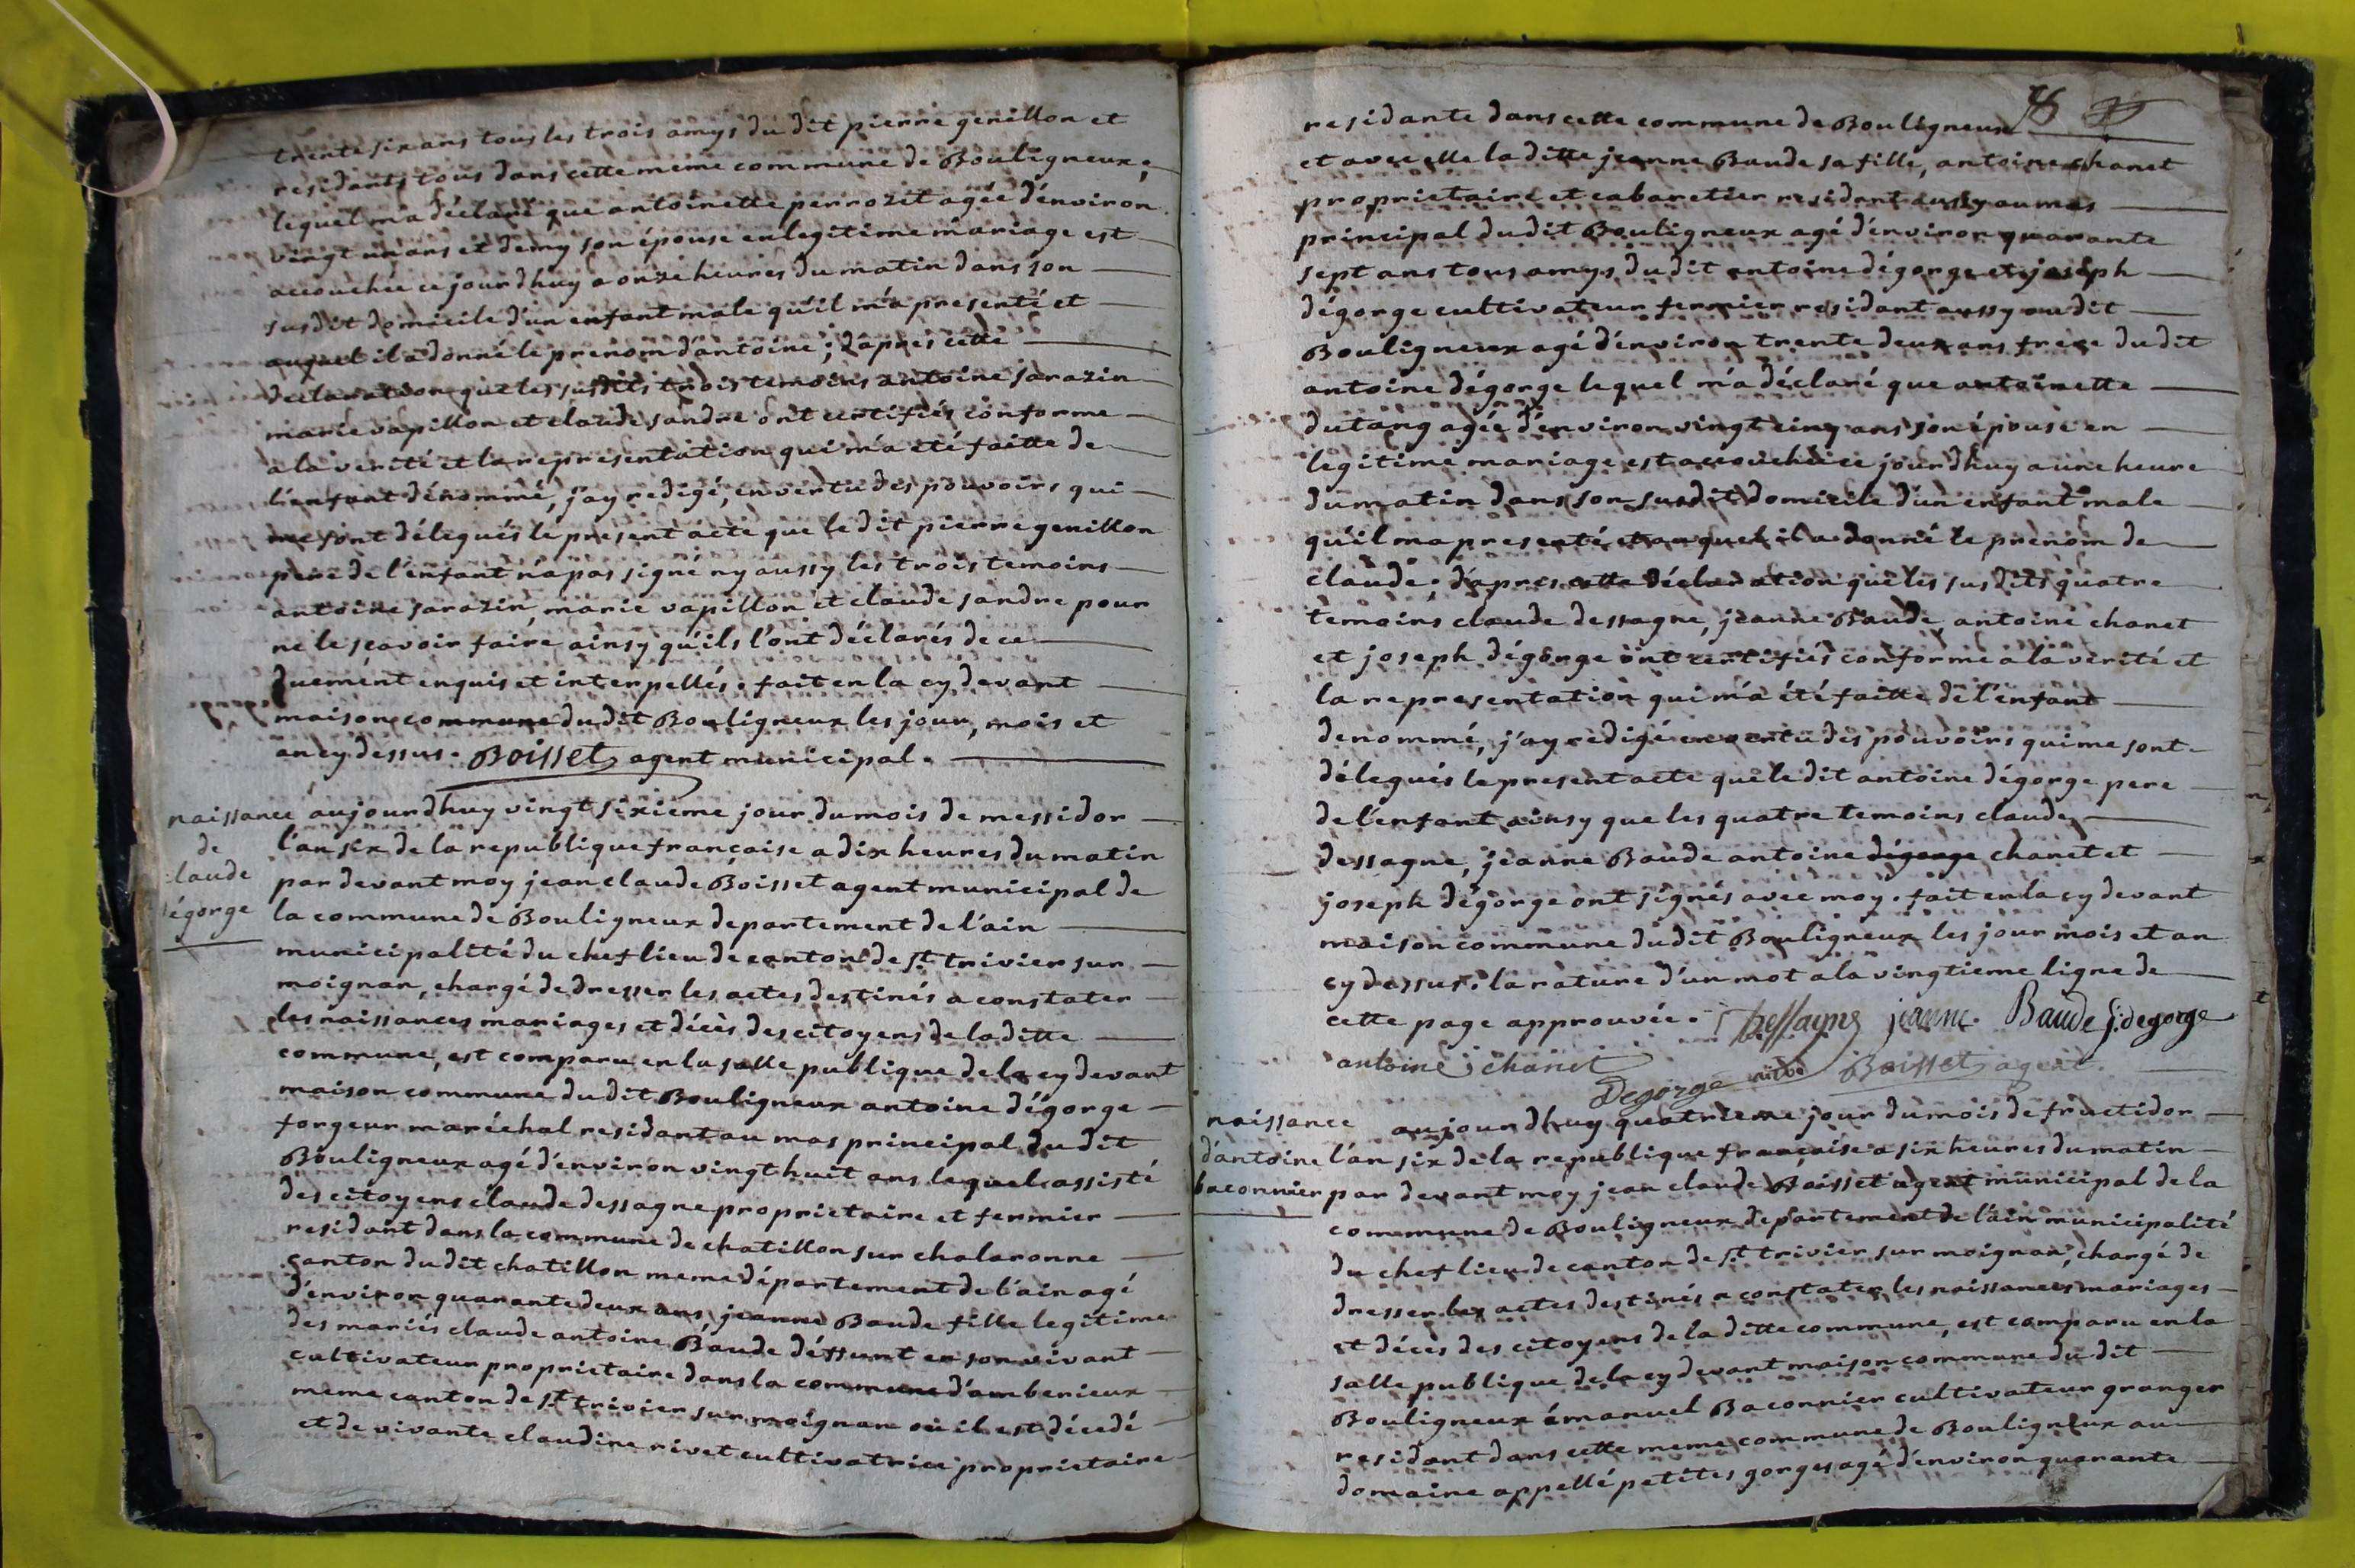 trente six ans tous les trois amys du dit pierre genillon et
residants tous dans cette meme commune de Bouligneux ;
lequel m'a déclaré que antoinette perrozit agée d'environ
vingt un ans et demy son épouse en legitime mariage est
accouchée ce jourdhuy a onze heures du matin dans son
susdit domicile d'un enfant male qu'il m'a presenté et
auquel il a donné le prenom d'antoine ; d'apres cette
declaration que les susdits trois temoins antoine sarazin
marie vapillon et claude sandre ont certifiés conforme
a la verité et la representation qui m'a été faitte de
l'enfant dénommé, j'ay redigé, en vertu des pouvoirs qui
me sont délegués le present acte que le dit pierre genillon
pere de l'enfant n'a pas signé ny aussy les trois temoins
antoine sarazin, marie vapillon et claude sandre pour
ne le sçavoir faire ainsy qu'ils l'ont déclarés de ce
duement enquis et interpellés . fait en la cy devant
maison commune du dit Bouligneux les jour, mois et
an cy dessus . Boisset agent municipal .
naissance
de
claude
dégorge
aujourdhuy vingt sixieme jour du mois de messidor
l'an six de la republique française a dix heures du matin
par devant moy jean claude Boisset agent municipal de
la commune de Bouligneux departement de l'ain
municipalité du chef lieu de canton de st. trivier sur
moignan, chargé de dresser les actes destinés a constater
les naissances mariages et décès des citoyens de la ditte
commune, est comparu en la salle publique de la cy devant
maison commune du dit Bouligneux antoine dégorge
forgeur maréchal residant au mas principal du dit
Bouligneux agé d'environ vingt huit ans lequel assisté
des citoyens claude dessagne proprietaire et fermier
residant dans la commune de chatillon sur chalaronne
canton du dit chatillon meme département de l'ain agé
d'environ quarante deux ans, jeanne Baude fille legitime
des mariés claude antoine Baude déffunt en son vivant
cultivateur proprietaire dans la commune d'amberieux
meme canton de st. trivier sur moignan où il est décedé
et de vivante claudine rivet cultivatrice proprietaire
residante dans cette commune de Bouligneux
et avec elle la ditte jeanne Baude sa fille, antoine chanet
proprietaire et cabaretier residant aussy au mas
principal du dit Bouligneux agé d'environ quarante
sept ans tous amys du dit antoine dégorge et joseph
dégorge cultivateur fermier residant aussy au dit
Bouligneux agé d'environ trente deux ans frere du dit
antoine dégorge lequel m'a déclaré que antoinette
dutang agée d'environ vingt cinq ans son épouse en
legitime mariage est accouchée ce jourdhuy a une heure
du matin dans son susdit domicile d'un enfant male
qu'il m'a presenté et auquel il a donné le prenom de
claude ; d'apres cette déclaration que les susdits quatre
temoins claude dessagne, jeanne Baude, antoine chanet
et joseph dégorge ont certifiés conforme a la verité et
la representation qui m'a été faitte de l'enfant
denommé, j'ay redigé en vertu des pouvoirs qui me sont
délegués le present acte que le dit antoine dégorge pere
de l'enfant ainsy que les quatre temoins claude
dessagne, jeanne Baude antoine dégorge chanet et
joseph dégorge ont signés avec moy . fait en la cy devant
maison commune du dit Bouligneux les jour mois et an
cy dessus . la rature d'un mot a la vingtieme ligne de
cette page approuvée . Dessagne jeanne Baude J: degorge
antoine chanet
Degorge Boisset agent .
naissance
d'antoine
baconnier
aujourdhuy quatrieme jour du mois de fructidor
l'an six de la republique française a six heures du matin
par devant moy jean claude Boisset agent municipal de la
commune de Bouligneux departement de l'ain municipalité
du chef lieu de canton de st. trivier sur moignan, chargé de
dresser les actes destinés a constater les naissances mariages
et décès des citoyens de la ditte commune, est comparu en la
salle publique de la cy devant maison commune du dit
Bouligneux émanuel Baconnier cultivateur granger
residant dans cette meme commune de Bouligneux au
domaine appellé petites gorges agé d'environ quarante